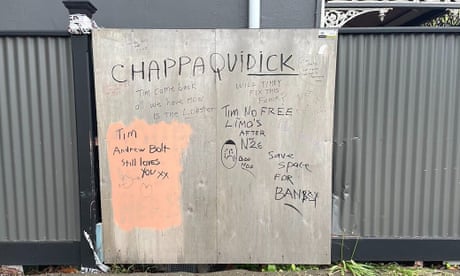 CHAPPAQUIDICK
Tim come back
all we have now
is the Lobster
WILL TIMMY
FIX THIS
FENCE?
Tim
Andrew Bolt
Still loves
YOU xx
Tim NO FREE
LIMO'S
AFTER
N26
Save
space
FOR